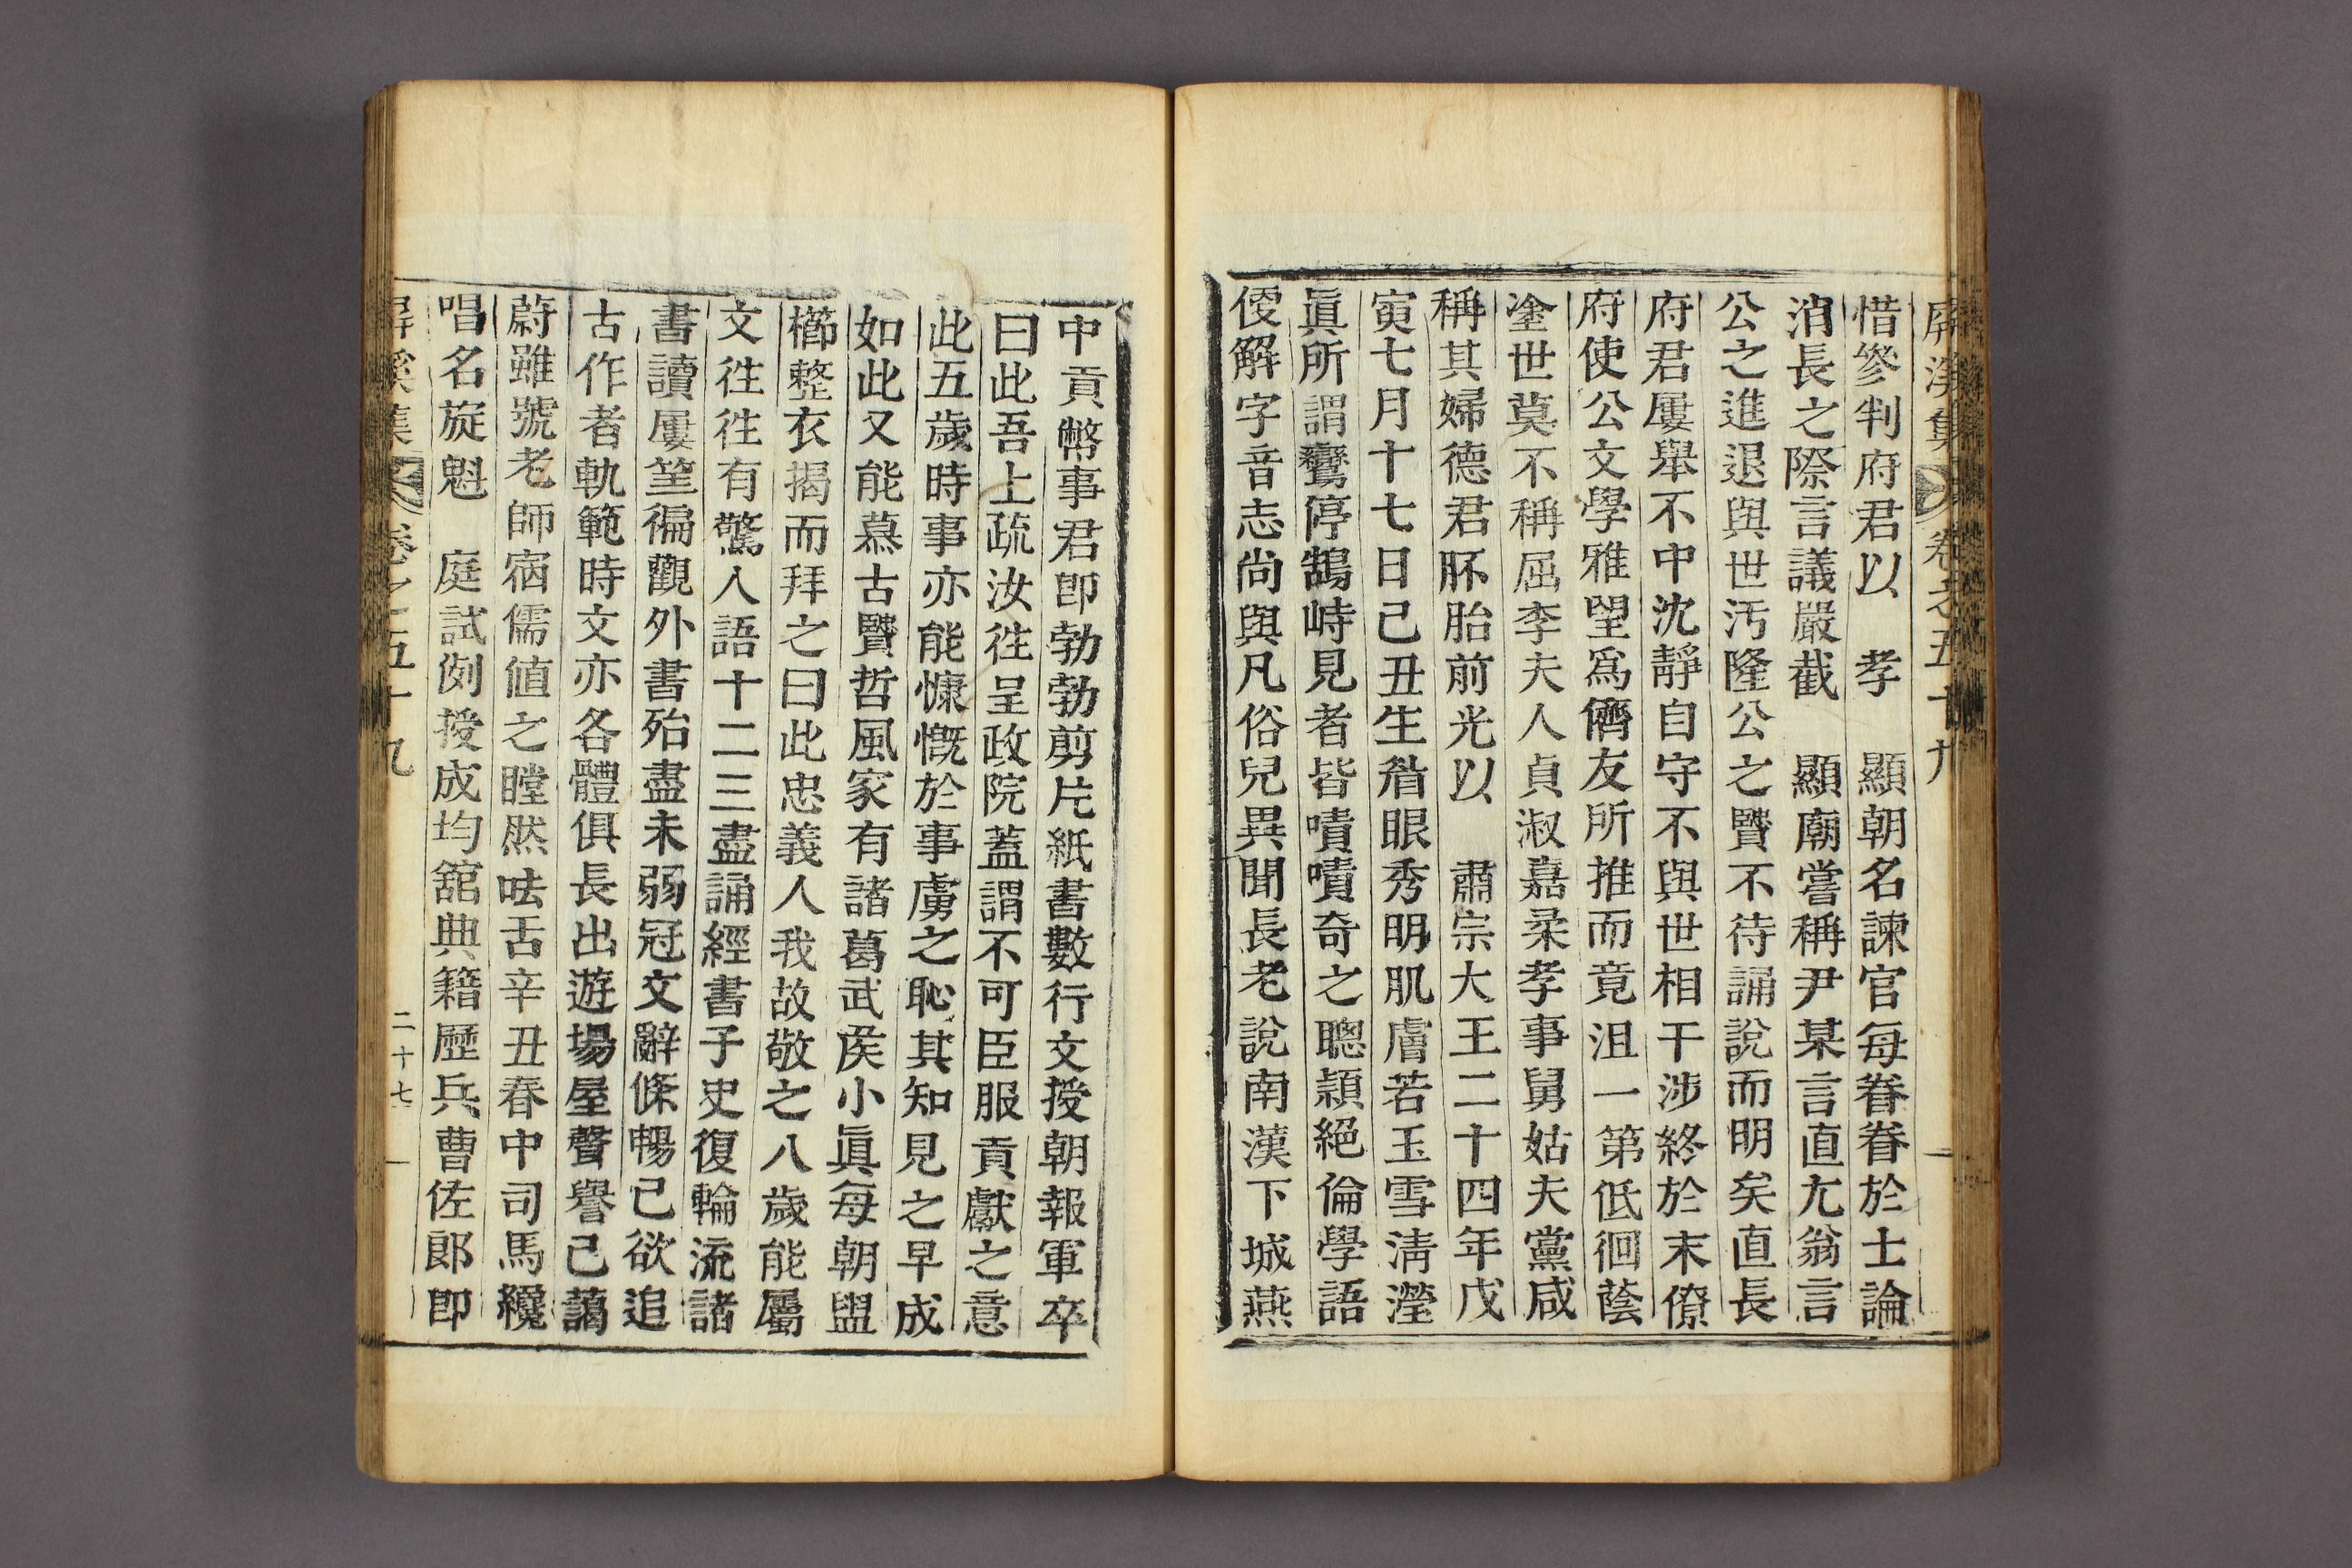 屛溪集 卷之五十九
惜參判府君以 孝 顯朝名諫官每眷眷於士論
消長之際言議嚴截 顯廟嘗稱尹某言直尤翁言
公之進退與世汚隆公之賢不待誦說而明矣直長
府君屢舉不中沈靜自守不與世相干涉終於末僚
府使公文學雅望爲儕友所推而竟沮一第低徊蔭
塗世莫不稱屈李夫人貞淑嘉柔孝事舅姑夫黨咸
稱其婦德君胚胎前光以 肅宗大王二十四年戊
寅七月十七日己丑生眉眼秀明肌膚若玉雪淸瀅
眞所謂鸞停鵠峙見者皆嘖嘖奇之聰穎絕倫學語
便解字音志尚與凡俗兒異聞長老說南漢下城燕
中貢幣事君卽勃勃剪片紙書數行文授朝報軍卒
曰此吾上疏汝徃呈政院蓋謂不可臣服貢獻之意
此五歲時事亦能慷慨於事虜之恥其知見之早成
如此又能慕古賢哲風家有諸葛武侯小眞每朝盥
櫛整衣揭而拜之曰此忠義人我故敬之八歲能屬
文徃徃有驚人語十二三盡誦經書子史復輪流諸
書讀屢筆徧觀外書殆盡未弱冠文辭條暢已欲追
古作者軌範時文亦各體俱長出遊場屋聲譽已藹
蔚雖號老師宿儒値之瞠然呿舌辛丑春中司馬纔
唱名旋魁 庭試例授成均舘典籍歷兵曹佐郞卽
屛溪集 卷之五十九 二十七